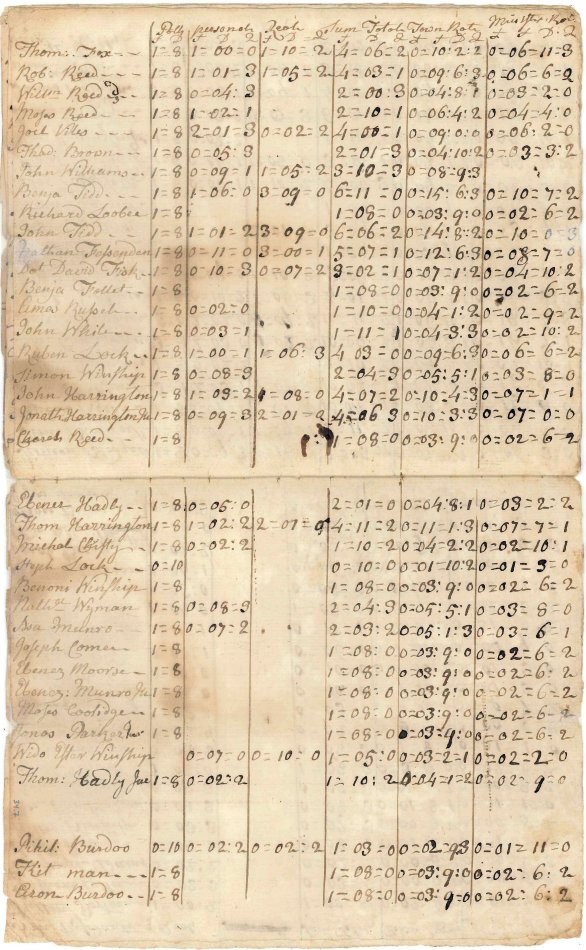 Polls Personal Real Sum Total Town Rate Minister Rate
Thom: Fox 1=8 1=00=0 1=10=2 4=06=2 0=10:2:2 0=06=11=3
Rob: Reed 1=8 1=01=3 1=05=2 4=03=1 0=09:6:3 0=06=6=2
Willm Reed 3d 1=8 0=04:3 2=00:3 0=04:8:1 0=03=2=0
Moses Reed 1=8 1=02=1 2=10=1 0=06:4:2 0=04=4:0
Joel Viles 1=8 2=01=3 0=02=2 4=00=1 0=09:0:0 0=06:2=0
Thad Brown 1=8 0=05:3 2=01=3 0=04:10:2 0=03=3:2
John Williams 1=8 0=09=1 1=05=2 3=10=3 0=08=9:3
Benja Tidd 1=8 1=06:0 3=09=0 6=11=0 0=15:6:3 0=10=7=2
Richard Loobee 1=8 1=08=0 0=03:9:0 0=02=6=2
John Tidd 1=8 1=01=2 3=09=0 6=06=2 0=14:8:2 0=10=0=3
Nathan Fessenden 1=8 0=11=0 3=00=1 5=07=1 0=12:6:3 0=08=7=0
Dot David Fisk 1=8 0=10=3 0=07=2 3=02=1 0=07:1:2 0=04=10:2
Benja Fellet 1=8 1=08=0 0=03:9:0 0=02=6=2
Amos Russel 1=8 0=02=0 1=10=0 0=04:1:2 0=02=9=2
John White 1=8 0=03=1 1=11=1 0=04:3:3 0=02=10:2
Ruben Lock 1=8 1=00=1 1=06:3 4 03=0 0=09=6:3 0=06=6=2
Simon Winship 1=8 0=08=3 2=04=3 0=05:5:1 0=03=8=0
John Harrington 1=8 1=03=2 1=08=0 4=07=2 0=10=4:3 0=07=1=1
Jonath Harrington Ju 1=8 0=09=3 2=01=2 4=06 3 0=10:3:3 0=07=0=0
Reed 1=8 1=08=0 0=03:9:0 0=02=6=2
Ebener Hadly 1=8 0=05:0 2=01=0 0=04:8:1 0=03=2:2
Thom Harrington 1=8 1=02:2 2=01= 4=11=2 0=11=1:3 0=07=7=1
Michal 1=8 0=02:2 1=10=2 0=04=2:2 0=02=10:1
Steph Lock 0=10 0=10=0 0=01=10:2 0=01=3=0
Benoni Winship 1=8 1=08=0 0=03:9:0 0=02=6=2
Nathll Wyman 1=8 0=08=3 2=04:3 0=05:5:1 0=03=8=0
Asa Munro 1=8 0=07=2 2=03:2 0=05:1:3 0=03=6=1
Joseph Comee 1=8 1=08:0 0=03:9:0 0=02=6=2
Ebenez Moorse 1=8 1=08:0 0=03:9:0 0=02=6=2
Ebenez: Munro Ju 1=8 1=08=0 0=03:9:0 0=02=6=2
Moses Coolidge 1=8 1=08=0 0=03:9:0 0=02=6=2
Jonas Parker Jur 1=8 1=08=0 0=03:9:0 0=02=6:2
Wido Ester Winship 0=07=0 0=10=0 1=05:0 0=03=2=1 0=02=2=0
Thom: Hadly Jue 1=8 0=02:2 1=10:2 0=04=1=2 0=02=9=0
Pihil: Burdoo 0=10 0=02:2 0=02=2 1=03=0 0=02=93 0=01=11=0
Kit man 1=8 1=08=0 0=03:9:0 0=02=6:2
Aron Burdoo 1=8 1=08=0 0=03:9=0 0=02:6:2